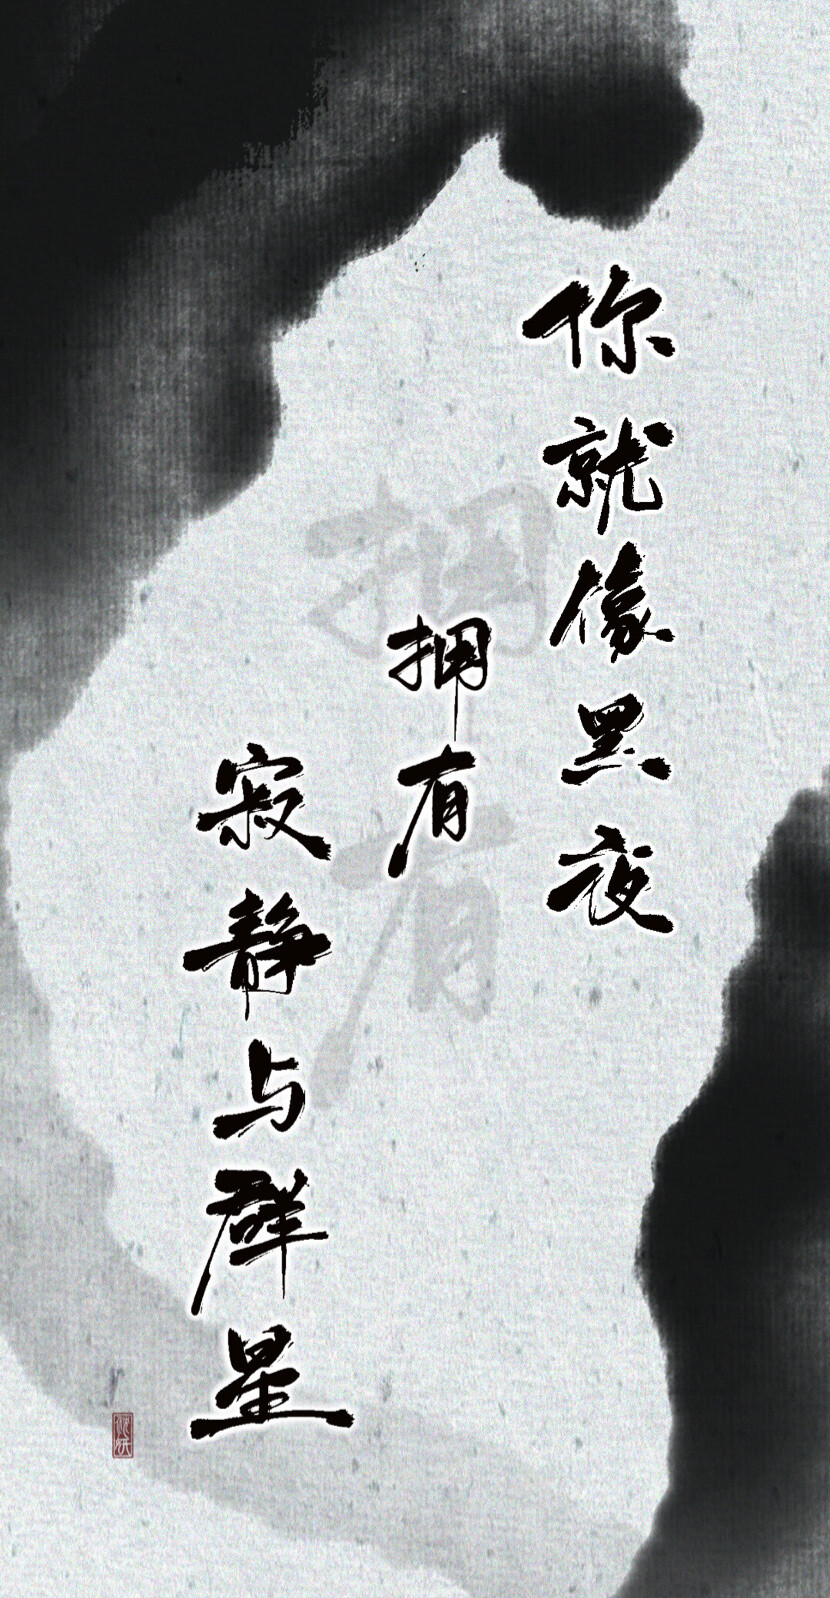 你就像黑夜
拥有
寂静与群星
拥有